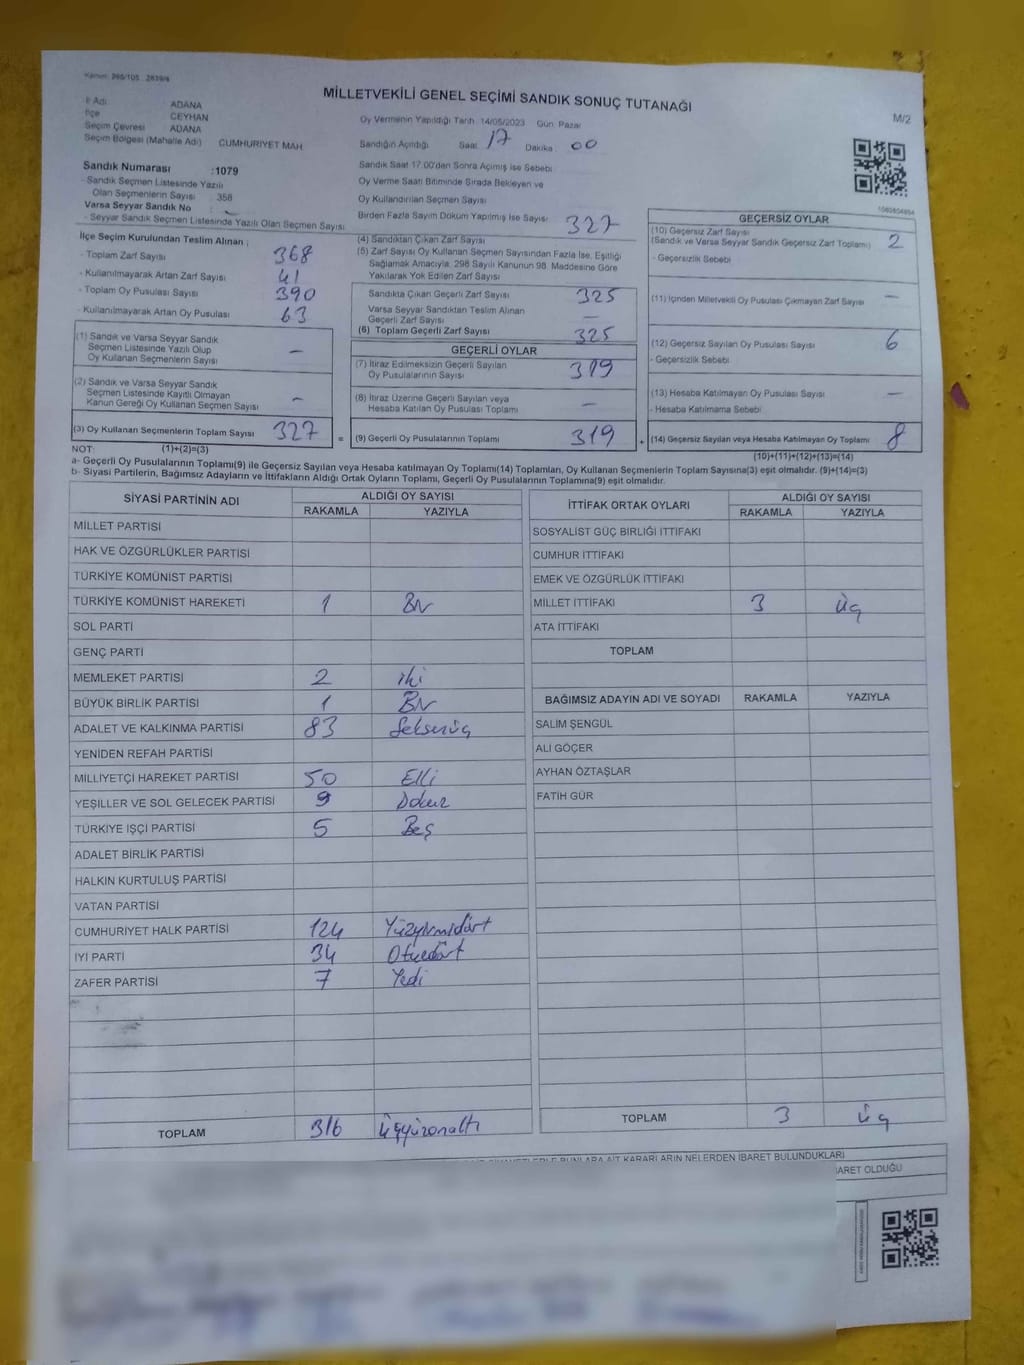 Kanun: 298/105 2839/4
MİLLETVEKİLİ GENEL SEÇİMİ SANDIK SONUÇ TUTANAĞI
M/2
İl Adı ADANA
İlçe CEYHAN
Seçim Çevresi ADANA
Seçim Bölgesi (Mahalle Adı) CUMHURİYET MAH.
Sandık Numarası :1079
- Sandık Seçmen Listesinde Yazılı
Olan Seçmenlerin Sayısı : 358
Varsa Seyyar Sandık No :
- Seyyar Sandık Seçmen Listesinde Yazılı Olan Seçmen Sayısı:
Oy Vermenin Yapıldığı Tarih: 14/05/2023 Gün: Pazar
Sandığın Açıldığı Saat: 17 Dakika: 00
Sandık Saat 17.00'den Sonra Açılmış İse Sebebi:
Oy Verme Saati Bitiminde Sırada Bekleyen ve
Oy Kullandırılan Seçmen Sayısı
Birden Fazla Sayım Döküm Yapılmış İse Sayısı:
İlçe Seçim Kurulundan Teslim Alınan ;
- Toplam Zarf Sayısı : 368
- Kullanılmayarak Artan Zarf Sayısı : 41
- Toplam Oy Pusulası Sayısı : 390
- Kullanılmayarak Artan Oy Pusulası : 63
(1) Sandık ve Varsa Seyyar Sandık
Seçmen Listesinde Yazılı Olup
Oy Kullanan Seçmenlerin Sayısı —
(2) Sandık ve Varsa Seyyar Sandık
Seçmen Listesinde Kayıtlı Olmayan
Kanun Gereği Oy Kullanan Seçmen Sayısı -
(3) Oy Kullanan Seçmenlerin Toplam Sayısı 327
(1)+(2)=(3)
(4) Sandıktan Çıkan Zarf Sayısı 327
(5) Zarf Sayısı Oy Kullanan Seçmen Sayısından Fazla İse, Eşitliği
Sağlamak Amacıyla, 298 Sayılı Kanunun 98. Maddesine Göre
Yakılarak Yok Edilen Zarf Sayısı
Sandıkta Çıkan Geçerli Zarf Sayısı 325
Varsa Seyyar Sandıktan Teslim Alınan
Geçerli Zarf Sayısı —
(6) Toplam Geçerli Zarf Sayısı 325
GEÇERLİ OYLAR
(7) İtiraz Edilmeksizin Geçerli Sayılan
Oy Pusulalarının Sayısı 319
(8) İtiraz Üzerine Geçerli Sayılan veya
Hesaba Katılan Oy Pusulası Toplamı —
= (9) Geçerli Oy Pusulalarının Toplamı 319 +
GEÇERSİZ OYLAR
(10) Geçersiz Zarf Sayısı
(Sandık ve Varsa Seyyar Sandık Geçersiz Zarf Toplamı) 2
- Geçersizlik Sebebi
(11) İçinden Milletvekili Oy Pusulası Çıkmayan Zarf Sayısı —
(12) Geçersiz Sayılan Oy Pusulası Sayısı 6
- Geçersizlik Sebebi
(13) Hesaba Katılmayan Oy Pusulası Sayısı —
- Hesaba Katılmama Sebebi
(14) Geçersiz Sayılan veya Hesaba Katılmayan Oy Toplamı 8
(10)+(11)+(12)+(13)=(14)
NOT:
a- Geçerli Oy Pusulalarının Toplamı(9) ile Geçersiz Sayılan veya Hesaba katılmayan Oy Toplamı(14) Toplamları, Oy Kullanan Seçmenlerin Toplam Sayısına(3) eşit olmalıdır. (9)+(14)=(3)
b- Siyasi Partilerin, Bağımsız Adayların ve İttifakların Aldığı Ortak Oyların Toplamı, Geçerli Oy Pusulalarının Toplamına(9) eşit olmalıdır.
SİYASİ PARTİNİN ADI ALDIĞI OY SAYISI
RAKAMLA YAZIYLA
MİLLET PARTİSİ
HAK VE ÖZGÜRLÜKLER PARTİSİ
TÜRKİYE KOMÜNİST PARTİSİ
TÜRKİYE KOMÜNİST HAREKETİ 1 Bir
SOL PARTİ
GENÇ PARTİ
MEMLEKET PARTİSİ 2 iki
BÜYÜK BİRLİK PARTİSİ 1 Bir
ADALET VE KALKINMA PARTİSİ 83 Seksenüç
YENİDEN REFAH PARTİSİ
MİLLİYETÇİ HAREKET PARTİSİ 50 Elli
YEŞİLLER VE SOL GELECEK PARTİSİ 9 Dokuz
TÜRKİYE İŞÇİ PARTİSİ 5 Beş
ADALET BİRLİK PARTİSİ
HALKIN KURTULUŞ PARTİSİ
VATAN PARTİSİ
CUMHURİYET HALK PARTİSİ 124 Yüzyirmidört
İYİ PARTİ 34 Otuzdört
ZAFER PARTİSİ 7 Yedi
TOPLAM 316 üçyüzonaltı
İTTİFAK ORTAK OYLARI ALDIĞI OY SAYISI
RAKAMLA YAZIYLA
SOSYALİST GÜÇ BİRLİĞİ İTTİFAKI
CUMHUR İTTİFAKI
EMEK VE ÖZGÜRLÜK İTTİFAKI
MİLLET İTTİFAKI 3 üç
ATA İTTİFAKI
TOPLAM
BAĞIMSIZ ADAYIN ADI VE SOYADI RAKAMLA YAZIYLA
SALİM ŞENGÜL
ALİ GÖÇER
AYHAN ÖZTAŞLAR
FATİH GÜR
TOPLAM 3 üç
BUNLARA AİT KARARLARIN NELERDEN İBARET BULUNDUKLARI
OLDUĞU